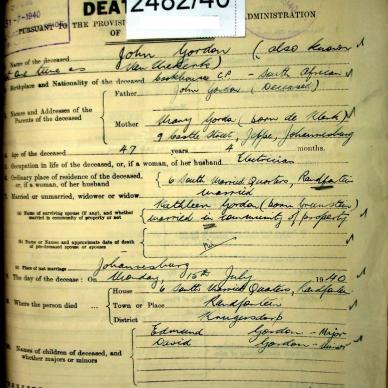 2482/40
DEAT
7-1940
PURSUANT TO THE PROVISI ADMINISTRATION
OF
Name of the deceased John Gordon (also known
at one time as
Birthplace and Nationality of the deceased C.P. - South African
Names and Addresses of the Parents of the deceased
Father John Gordon (Deceased)
Mother Mary Gordon (born de Klerk)
9 Castle Street, Jeppe, Johannesburg
Age of the deceased 47 years 4 months.
Occupation in life of the deceased, or, if a woman, of her husband Electrician
Ordinary place of residence of the deceased, or, if a woman, of her husband 6 South Married Quarters, Randfontein
Married or unmarried, widower or widow married
(a) Name of surviving spouse (if any), and whether married in community of property or not Kathleen Gordon (born
married in community of property
(b) Name or Names and approximate date of death of pre-deceased spouse or spouses Nil
(c) Place of last marriage Johannesburg
The day of the decease : On Monday 15th July 1940
Where the person died
House 6 South Married Quarters, Randfontein
Town or Place Randfontein
District Krugersdorp
Names of children of deceased, and whether majors or minors
Edmund Gordon - Major
David Gordon - Minor